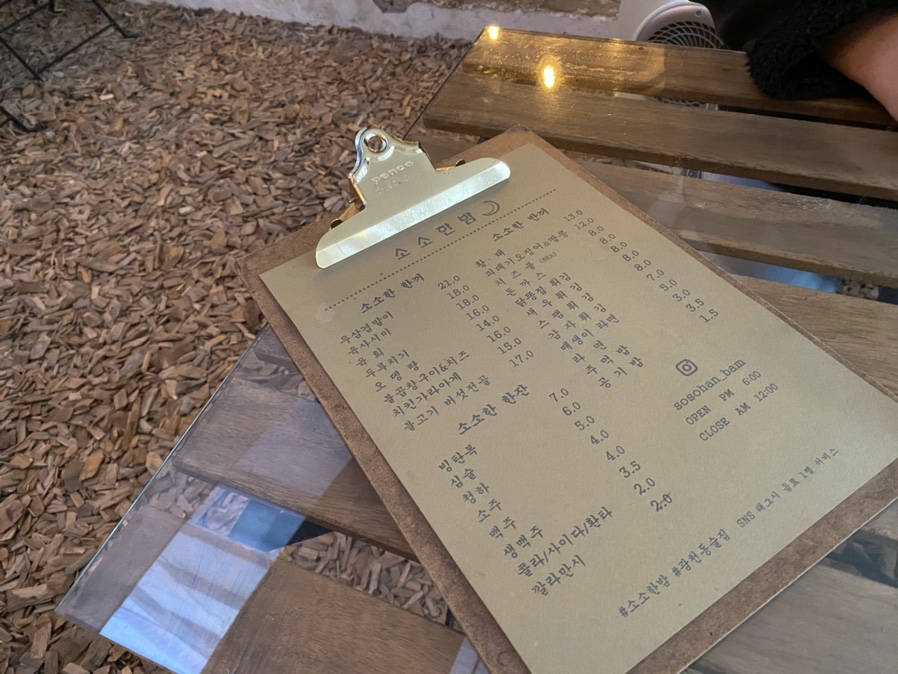 penco
소소한밤
소소한 한끼
우삼겸말이 21.0
육사시미 18.0
육 회 18.0
두루치기 16.0
오 뎅 탕 14.0
불곱창구이&치즈 16.0
치킨가라아게 15.0
불고기 버섯전골 17.0
소소한 한잔
빙탄복 7.0
심술 6.0
청하 5.0
소주 4.0
맥주 4.0
생맥주 3.5
콜라/사이다/환타 2.0
깔라만시 2.0
소소한 반끼
황 태 13.0
피데기오징어&땅콩 12.0
치 즈 볼 8.0
돈 까 스 8.0
닭똥집 튀김 8.0
새 우 튀 김 8.0
스 팸 튀 김 8.0
감 자 튀 김 7.0
매생이 라면 5.0
라 면 3.0
주 먹 밥 3.5
공 기 밥 1.5
sosohan_bam
OPEN PM 6:00
CLOSE AM 12:00
#소소한밤 #광천동술집 SNS 태그시 음료 1병 서비스